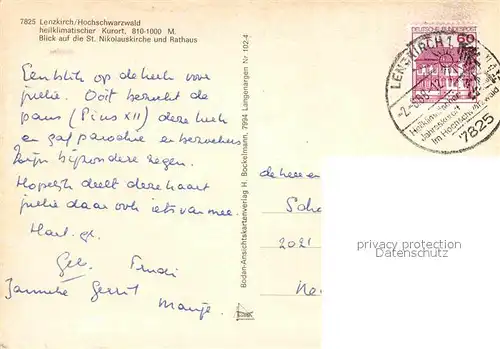 7825 Lenzkirch/Hochschwarzwald
heilklimatischer Kurort, 810-1000 M.
Blick auf die St. Nikolauskirche und Rathaus
Een blik op de kerk voor
jullie. Ooit bezocht de
paus (Pius XII) deze kerk
en gaf parochie en bezoekers
zijn bijzondere zegen.
Hopelijk deelt deze kaart
jullie daar ook iets van mee.
Hart. gr.
Trudi
Janneke Gerrit
Bodan-Ansichtskartenverlag H. Bockelmann, 7994 Langenargen Nr 102-4
DEUTSCHE BUNDESPOST
60
LENZKIRCH 1
Heilklimatischer
Jahreskurort
im Hochschwarzwald
7825
de heer en
2021
privacy protection